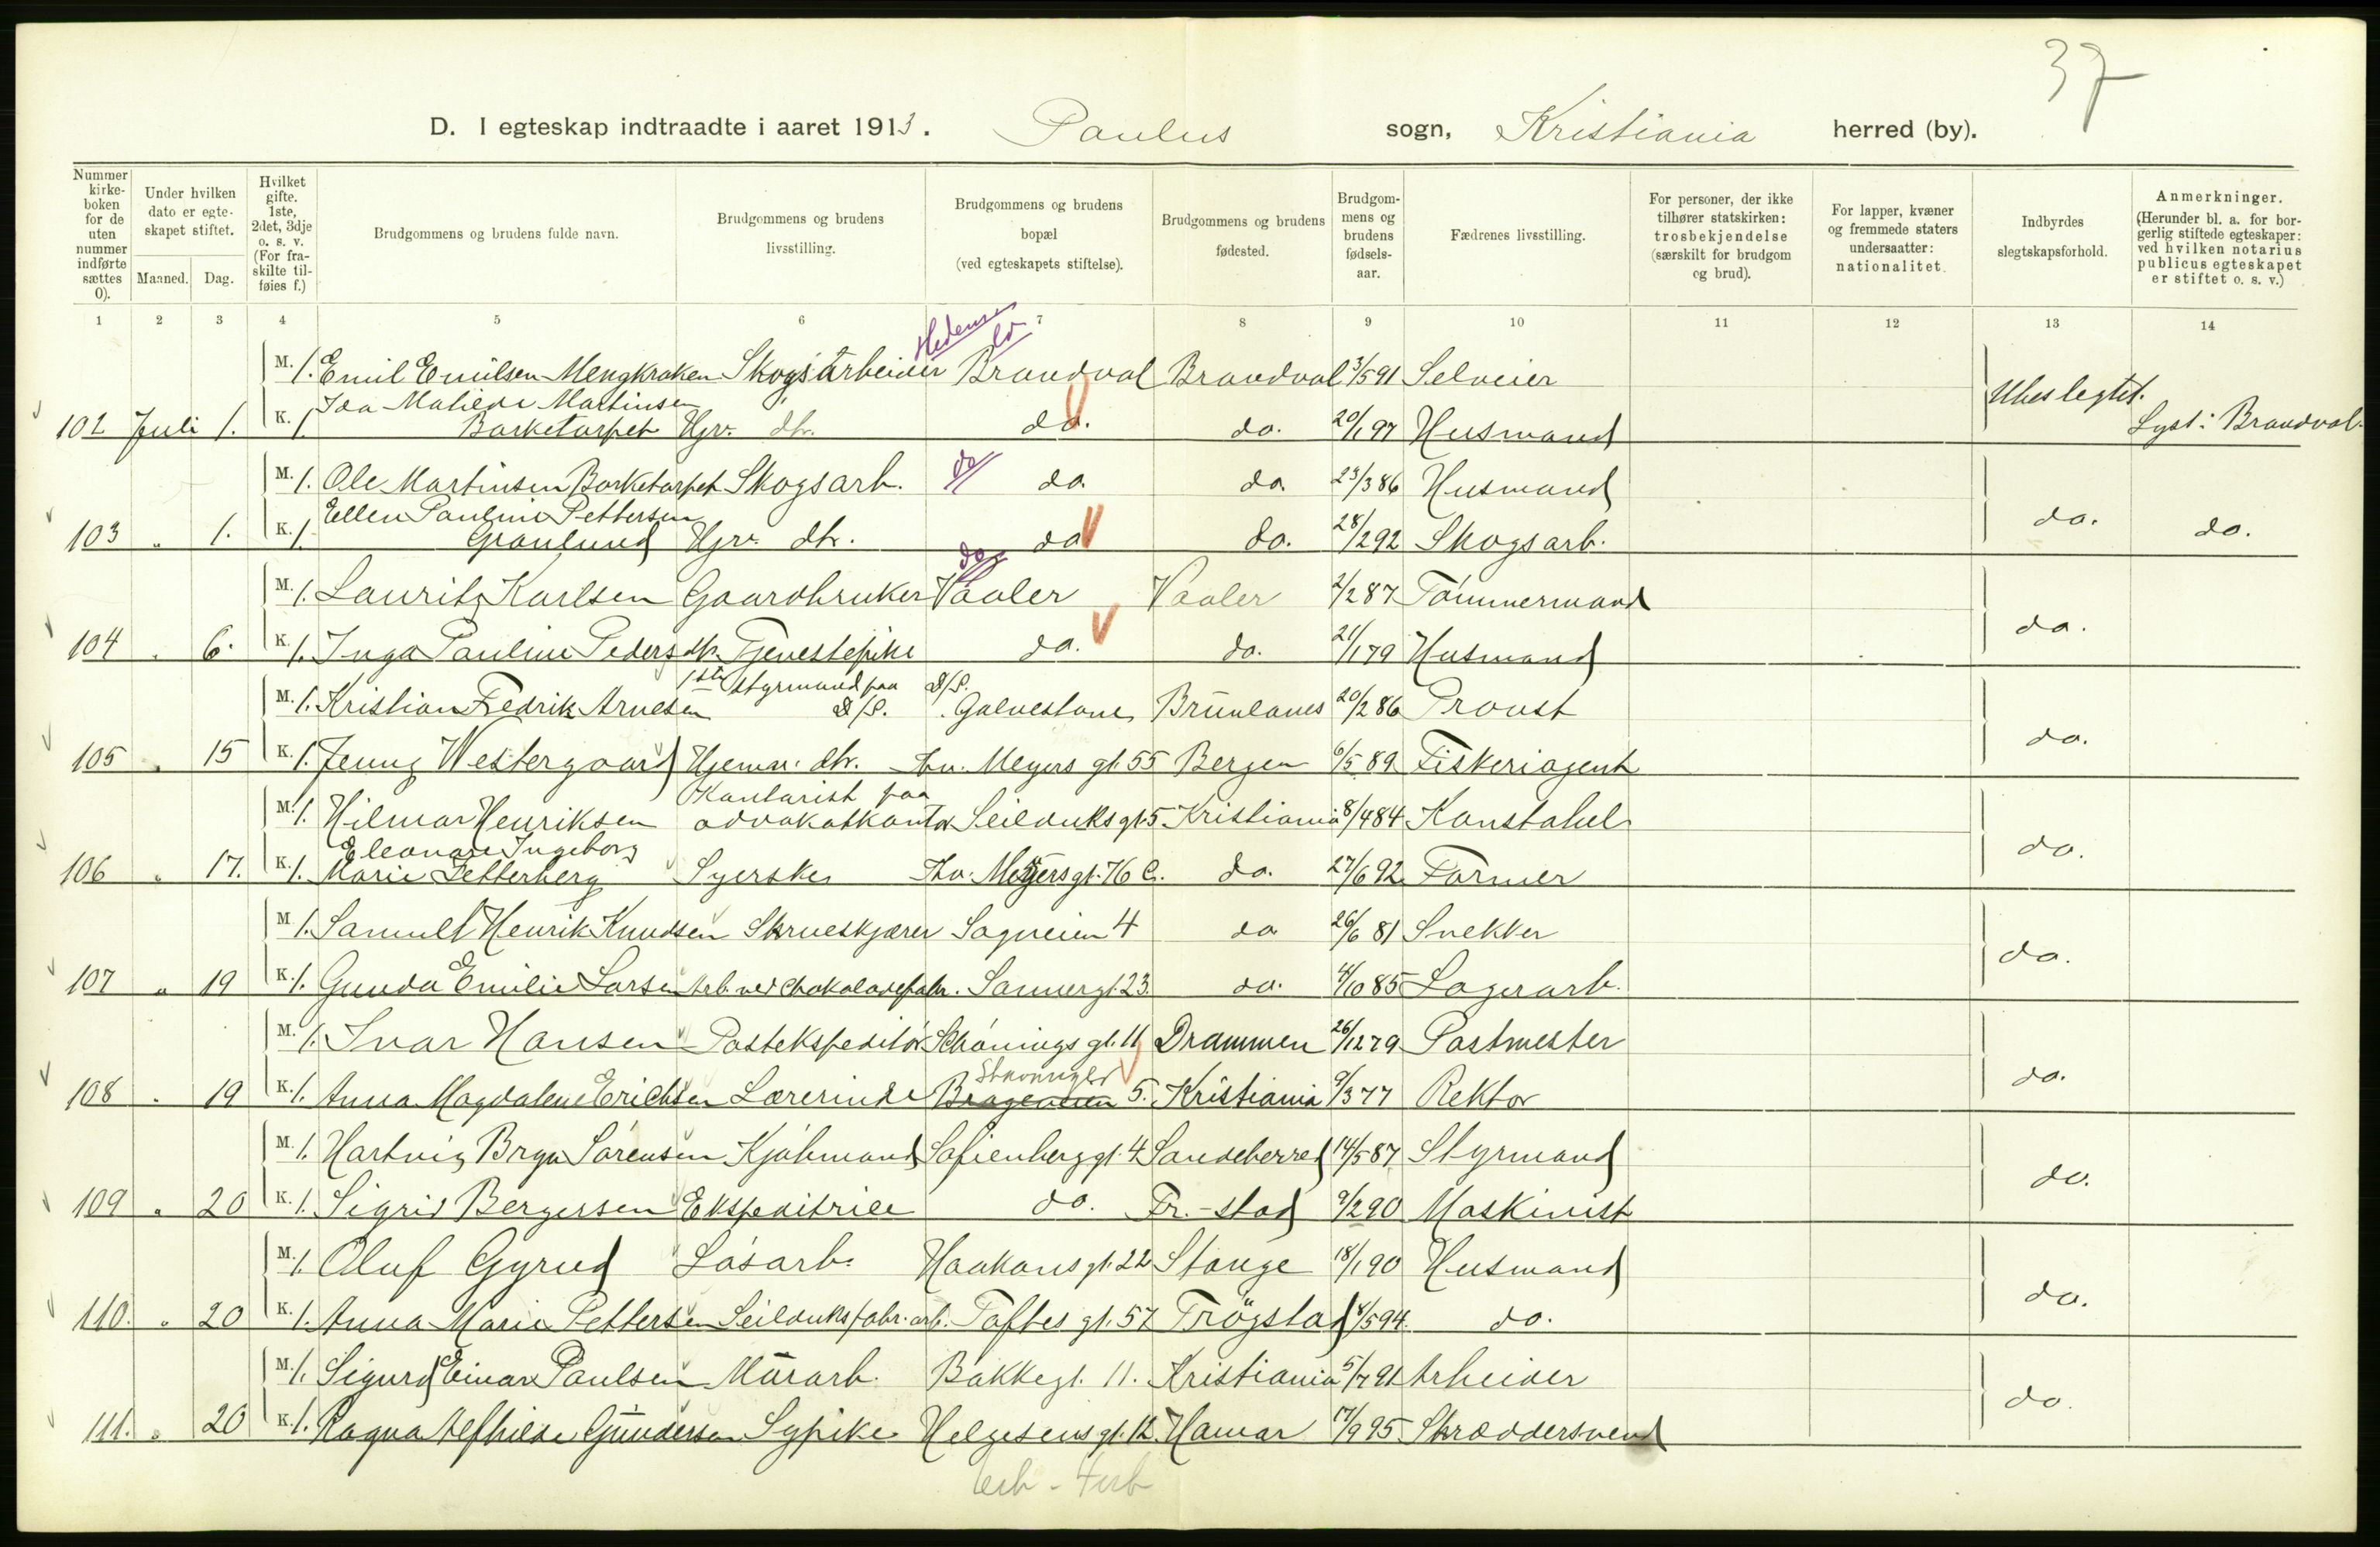 37
D. I egteskap indtraadte i aaret 1913. Paulus sogn, Kristiania herred (by).
Nummer kirkeboken for de uten nummer indførte sættes 0).
Under hvilken dato er egteskapet stiftet.
Maaned. Dag.
Hvilket gifte. 1ste, 2det, 3dje o. s. v. (For fraskilte tilføies f.)
Brudgommens og brudens fulde navn.
Brudgommens og brudens livsstilling.
Brudgommens og brudens bopæl (ved egteskapets stiftelse).
Brudgommens og brudens fødested.
Brudgommens og brudens fødselsaar.
Fædrenes livsstilling.
For personer, der ikke tilhører statskirken: trosbekjendelse (særskilt for brudgom og brud).
For lapper, kvæner og fremmede staters undersaatter: nationalitet.
Indbyrdes slegtskapsforhold.
Anmerkninger. (Herunder bl. a. for borgerlig stiftede egteskaper: ved hvilken notarius publicus egteskapet er stiftet o. s. v.)
1 2 3 4 5 6 7 8 9 10 11 12 13 14
M. 1. Emil Emilsen Mengkroken Skogsarbeider Brandval Brandval 3/5 91 Selveier
102 Juli 1. K. 1. Ida Matilde Martinsen Barketorpet Hjv. dtr. do. do. 20/1 97 Husmand Ubeslegtet. Lyst: Brandval.
M. 1. Ole Martinsen Barketorpet Skogsarb. do do. do. 23/3 86 Husmand
103 " 1. K. 1. Ellen Pauline Pettersen Granlund Hjv. dtr. do do. 28/2 92 Skogsarb. do. do.
M. 1. Laurits Karlsen Gaardbruker do Vaaler Vaaler 2/2 87 Tømmermand
104 " 6. K. 1. Inga Pauline Pedersdtr. Tjenestepike do. do. 21/1 79 Husmand do.
M. 1. Kristian Fredrik Arnesen 1ste Styrmand paa D/S. D/S. Galvestone Brunlanes 20/2 86 Provst
105 " 15 K. 1. Jenny Westergaard Hjemv. dtr. Thv. Meyers gt. 55 Bergen 6/5 89 Fiskeriagent do.
M. 1. Hilmar Henriksen Kontorist paa advokatkontor Seilduksgt. 5 Kristiania 8/4 84 Konstabel
106 " 17. K. 1. Eleonore Ingeborg Marie Fetterberg Syerske Thv. Meyersgt. 76 C. do. 27/6 92 Former do.
M. 1. Samuel Henrik Knudsen Skrueskjærer Sagveien 4 do 26/6 81 Snekker
107 " 19 K. 1. Gunda Emilie Larsen Arb. ved Chokoladefabr. Sannergt. 23. do. 4/10 85 Lagerarb. do.
M. 1. Ivar Hansen Postekspeditør Schønings gt. 11 Drammen 26/12 79 Postmester
108 " 19 K. 1. Anna Magdalene Erichsen Lærerinde Brageveien 5. Kristiania 9/3 77 Rektor do.
M. 1. Hartvig Bryn Sørensen Kjøbmand Sofienberggt. 4 Sandeherred 14/5 87 Styrmand
109 " 20 K. 1. Sigrid Bergersen Ekspeditrice do. Fr.-stad 9/2 90 Maskinist do.
M. 1. Oluf Gyrud Løsarb. Haakons gt. 22 Stange 18/1 90 Husmand
110. " 20 K. 1. Anna Marie Pettersen Seilduksfabr. arb. Toftes gt. 57 Trøgstad 8/5 94. do. do.
M. 1. Sigurd Einar Paulsen Murarb. Bakkegt. 11. Kristiania 5/7 91 Arbeider
111. " 20 K. 1. Ragna Alfhilde Gundersen Sypike Helgesensgt. 12. Hamar 17/9 95 Skræddersvend do.